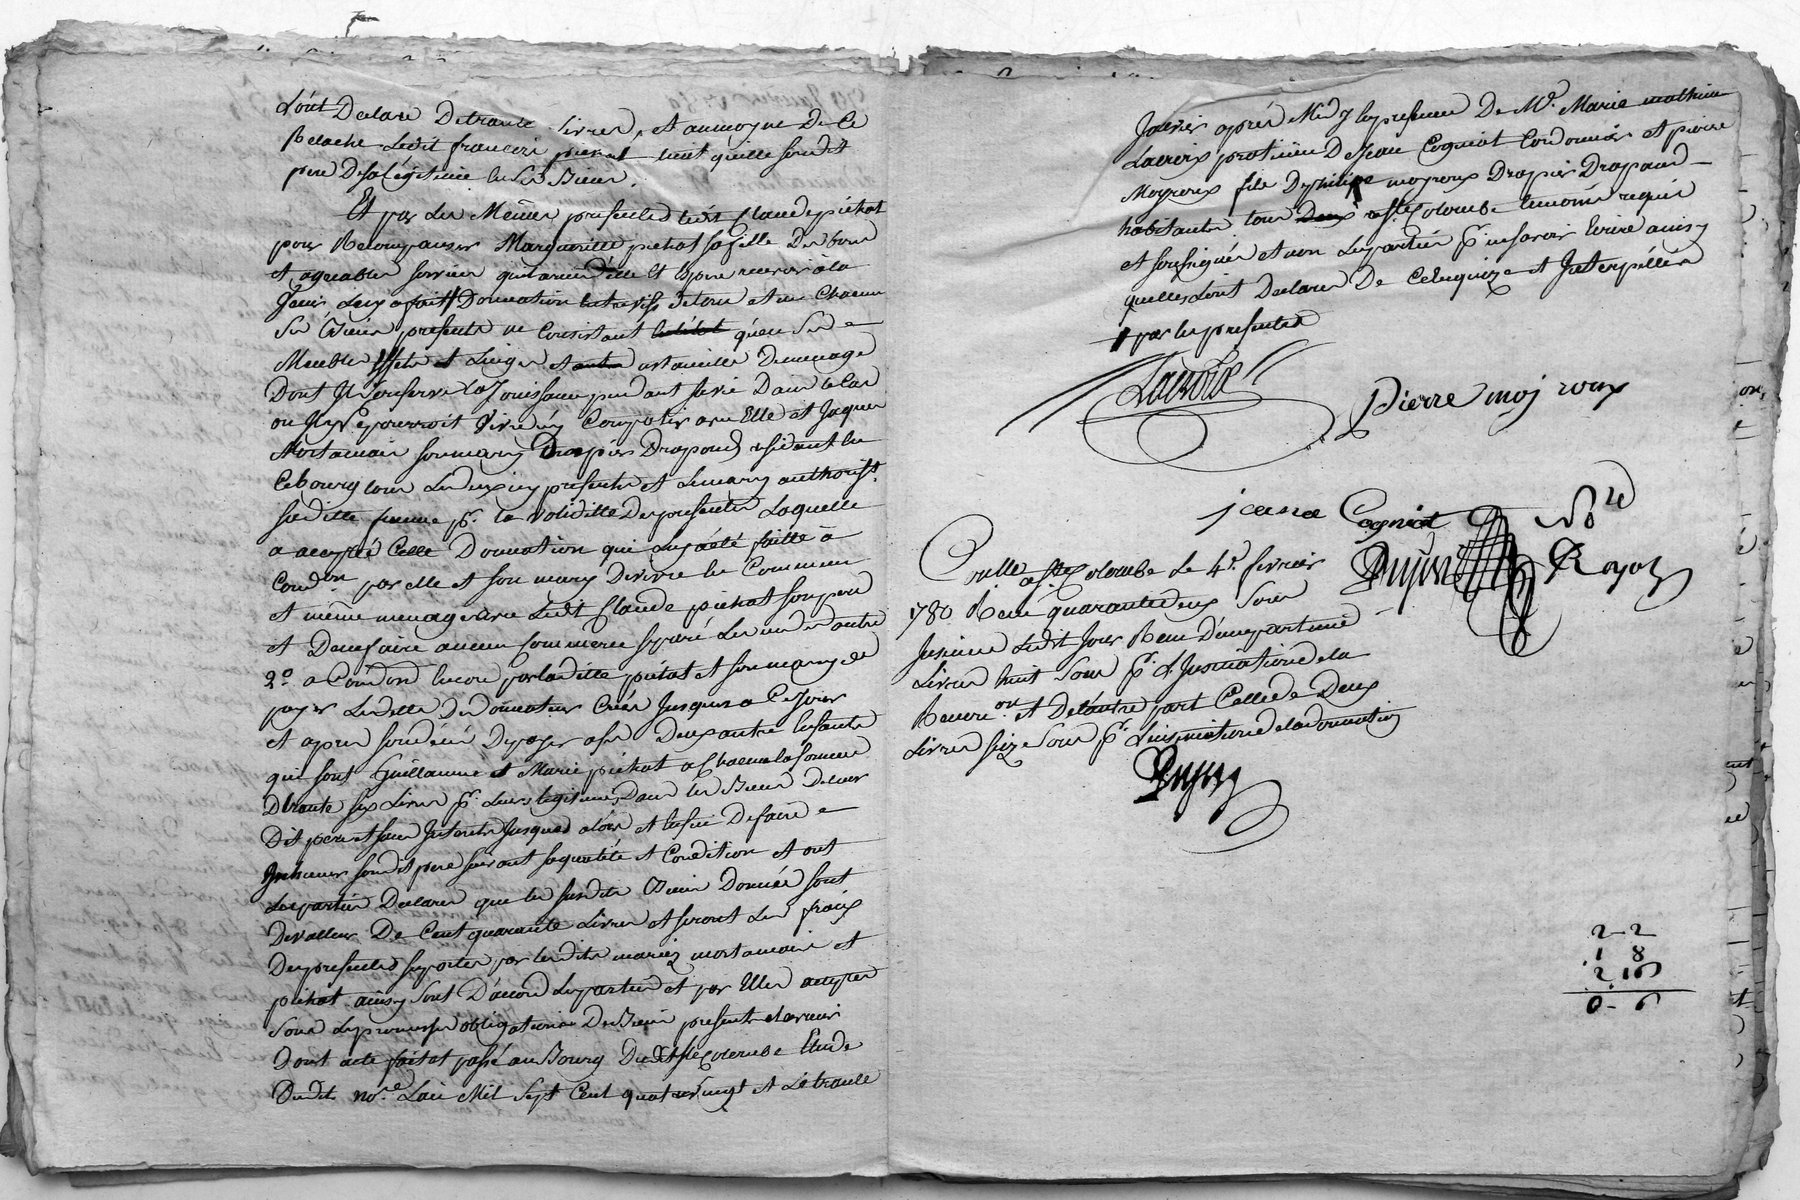 L'ont Declaré De trante Livres, et aumoyne De Ce
Relache Ledit francois pichat tient quitte sondit
pere De sa Légitime en Ses Biens.
Et par Les Mêmes presentes Ledit Claude pichat
pour Recompanser Margueritte pichat sa fille Des bons
et agreables services quil a receu d'elle Et Espere recevoir à la
venir Luy a fait Donnation entrevifs De tous et un Chacun
Ses Biens presents ne Consistant qu'en Ses
Meubles Effets et Linges et ustancille De menage
Dont Il Se reserve La Jouissance pendant sa vie Dans le Cas
ou Il ne pourroit Vivre Compatir avec Elle et Jaques
Mortamais son mary Drapier Drapant residant en
Ce bourg tous Les deux icy presents et Le mary authorist.
sa ditte femme pr. la Validitté Des presentes Laquelle
a accepté Celle Donnation qui Luy a eté faitte à
Cond.on par elle et son mary De vivre En Commun
et même menage avec Ledt Claude pichat son pere
et De ne faire aucun Commerce separé Les uns des autres
2.o a Condon Encore par laditte pichat et son mary de
payer Les dettes Du Donnateur Créés Jusques a Ce Jour
et apres son deces De payer a ses Deux autre Enfants
qui sont Guillaume et Marie pichat a Chacun la somme
De trante six Livres pr. Leurs legitimes Dans les Biens De leur
Dit pere et sans Interets Jusques alors et Enfin De faire
Inhumer son dit pere suivant sa quallité et Condition et ont
Les parties Declaré que les susdits Biens Donnés sont
De valleur De Cent quarante Livres et seront Les fraix
Des presentes suportés par lesdits mariez mortamais et
pichat. ainsy Sont D'accord Les parties et par Elles accepté
Sous Les promesses obligations De Biens presents et avenir
Dont acte fait et passé au Bourg Dudt Ste Colombe Etude
Dudit no.re L'an Mil Sept Cent quatre vingt et Le trante
Janvier après Midy En presence De Me. Marie mathieu
Lacroix praticien De Jean Cogniat Cordonnier et pierre
Mojroux fils De philipe mojroux Drapier Drapand
habitants tous Deux a Ste Colombe temoins requis
et soussignés et non Les parties pr. ne savoir Ecrire ainsy
quelles L'ont Declaré De Ce Enquize et Interpellés
par les presentes
Lacroix
pierre moj roux
jeana Cogniat
Pujon
No.re
Royal
Con.lle a Ste Colombe Le 4e. fevrier
1780 Recu quarante deux Sous
Insinué Ledit Jour Recu D'une part une
Livre huit Sous pr. L'Insination de la
Renon.on Et De l'autre part Celle de Deux
Livres seize Sous pr. L'insination de la donnation
Pujon
2-2
1 8
2 16
6-6